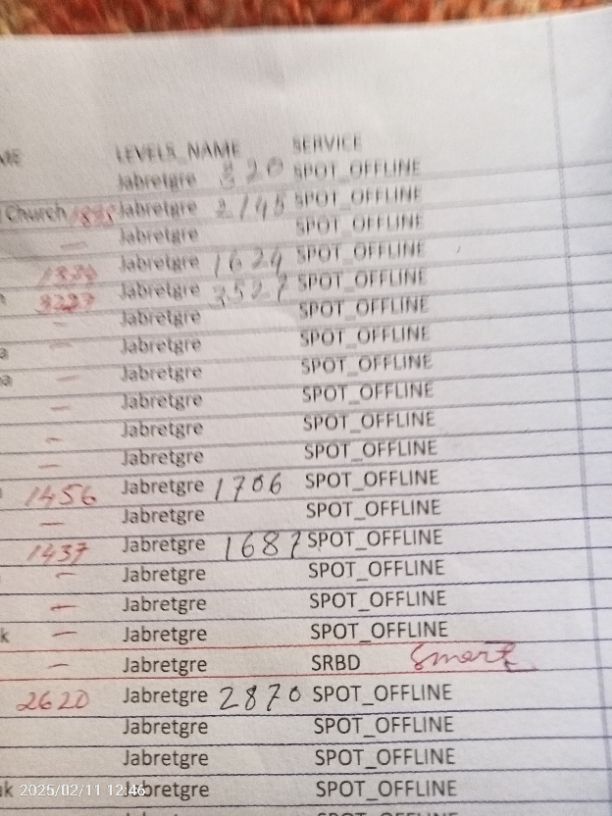 ME LEVELS_NAME SERVICE
Jabretgre 320 SPOT_OFFLINE
Church Jabretgre 2145 SPOT_OFFLINE
— Jabretgre SPOT_OFFLINE
Jabretgre 1624 SPOT_OFFLINE
Jabretgre 3527 SPOT_OFFLINE
— Jabretgre SPOT_OFFLINE
a — Jabretgre SPOT_OFFLINE
a — Jabretgre SPOT_OFFLINE
— Jabretgre SPOT_OFFLINE
— Jabretgre SPOT_OFFLINE
— Jabretgre SPOT_OFFLINE
1456 Jabretgre 1706 SPOT_OFFLINE
— Jabretgre SPOT_OFFLINE
1437 Jabretgre 1687 SPOT_OFFLINE
— Jabretgre SPOT_OFFLINE
— Jabretgre SPOT_OFFLINE
k — Jabretgre SPOT_OFFLINE
— Jabretgre SRBD Smart
2620 Jabretgre 2870 SPOT_OFFLINE
Jabretgre SPOT_OFFLINE
Jabretgre SPOT_OFFLINE
ak Jabretgre SPOT_OFFLINE
2025/02/11 12:46
SPOT_OFFLINE